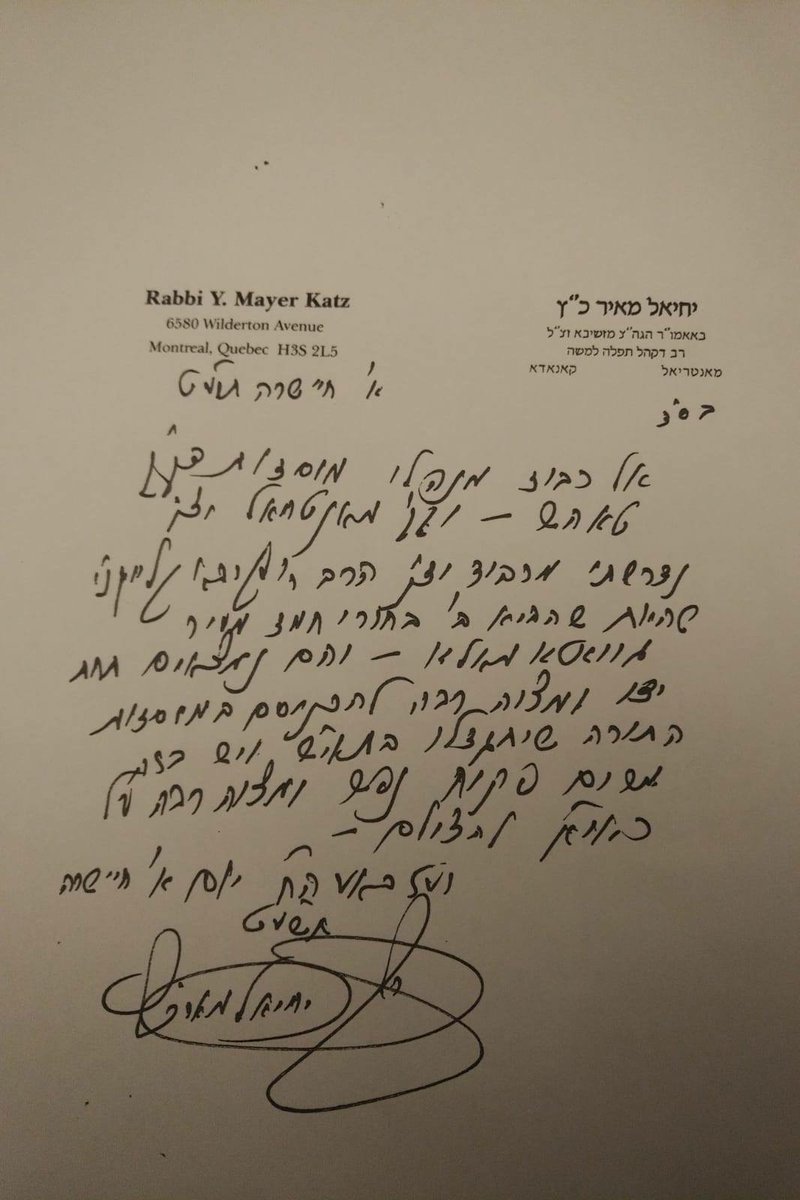 Rabbi Y. Mayer Katz
6580 Wilderton Avenue
Montreal, Quebec H3S 2L5
יחיאל מאיר כ״ץ
באאמו״ר הגה״צ מזשיבא זצ״ל
רב דקהל תפלה למשה
מאנטריאל קאנאדא
בס״ד
א' חיי שרה תשע״ט
אל כבוד מנהלי מוסדות
טאהש – מאנטריאל יצ״ו
נדרשתי מכבוד ידי' הרב
להיות שהביא ב' בחורי חמד מעיר
גוואטאמאלא – והם נמצאים תחת
ידו ומצוה רבה להכניסם במוסדות
התורה שיתגדלו בתוי״ש ויש בזה
משום פקוח נפש ומצוה רבה על
כאו״א להצילם –
ועז באעה״ח יום א' חיי שרה
תשע״ט
יחיאל מאיר